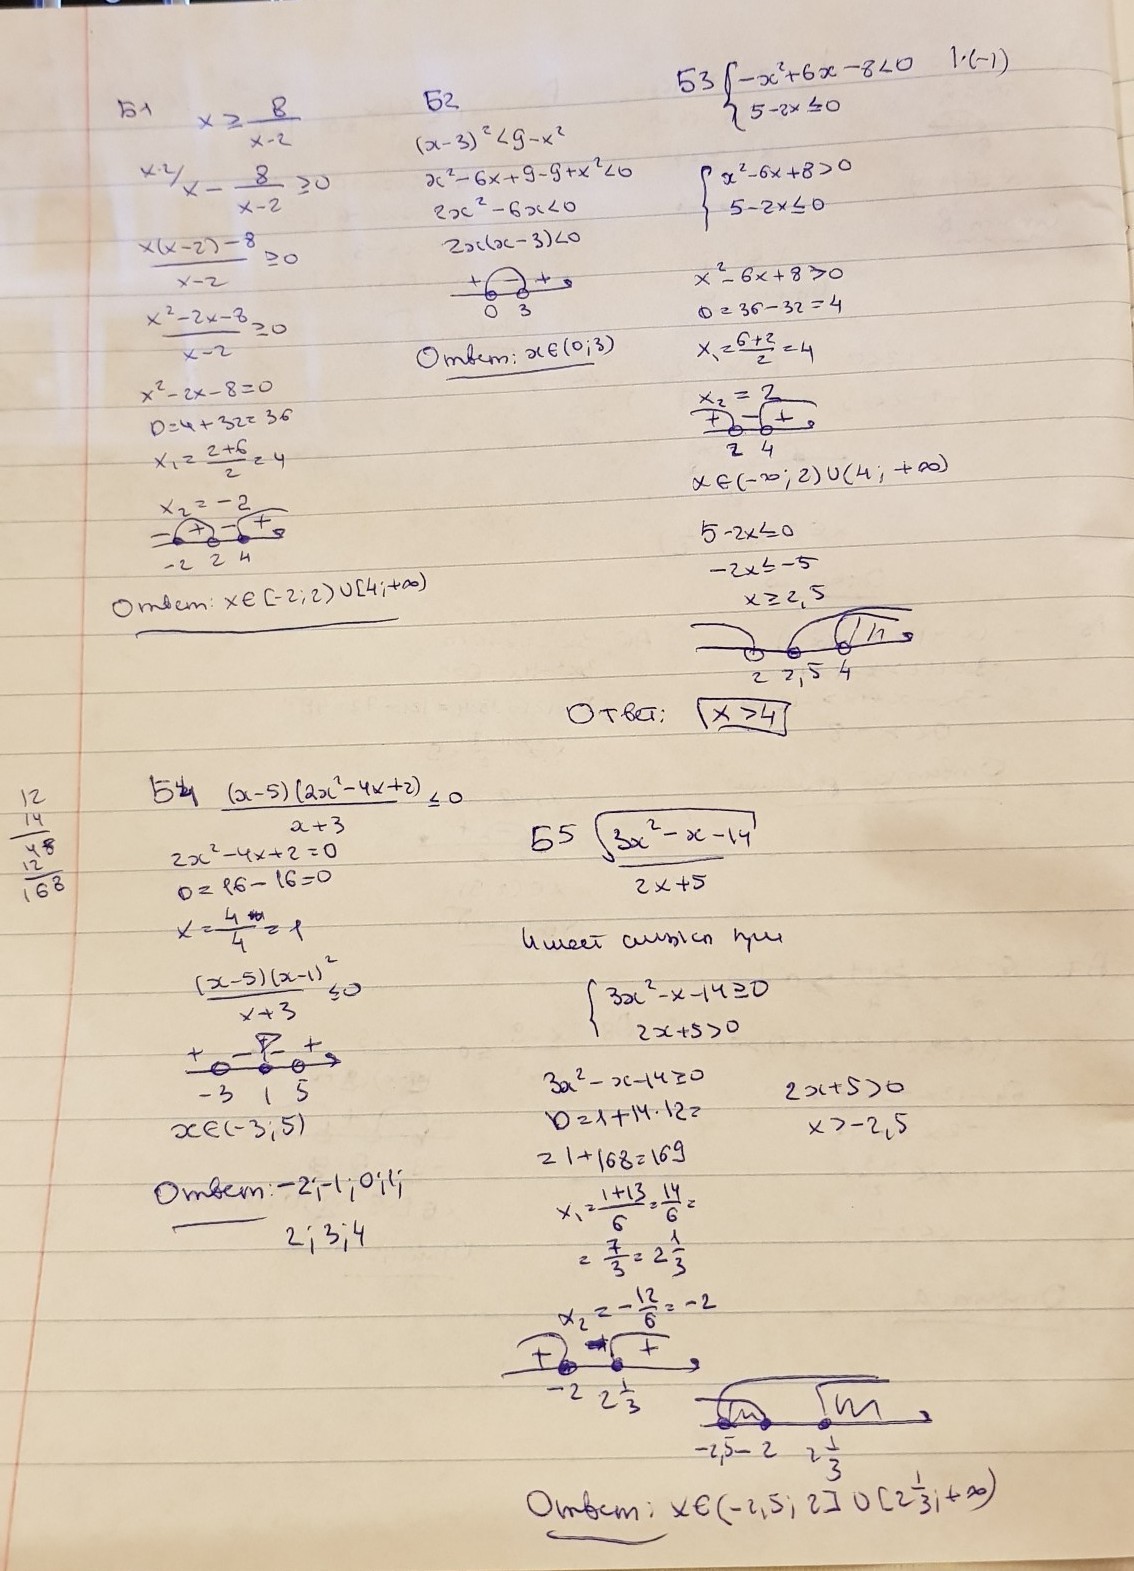 Б1
x ≥ 8/(x-2)
x-2/ x - 8/(x-2) ≥0
(x(x-2)-8)/(x-2) ≥0
(x²-2x-8)/(x-2) ≥0
x²-2x-8=0
D=4+32=36
x₁=(2+6)/2=4
x₂=-2
- + - +
-2 2 4
Ответ: x∈[-2;2)∪[4;+∞)
Б2
(x-3)²<9-x²
x²-6x+9-9+x²<0
2x²-6x<0
2x(x-3)<0
+ - +
0 3
Ответ: x∈(0;3)
Б3 { -x²+6x-8<0 |·(-1)
5-2x≤0
{ x²-6x+8>0
5-2x≤0
x²-6x+8>0
D=36-32=4
x₁=(6+2)/2=4
x₂=2
+ - +
2 4
x∈(-∞;2)∪(4;+∞)
5-2x≤0
-2x≤-5
x≥2,5
2 2,5 4
Ответ: x>4
12
14
48
12
168
Б4 ((x-5)(2x²-4x+2))/(x+3) ≤0
2x²-4x+2=0
D=16-16=0
x=4/4=1
((x-5)(x-1)²)/(x+3) ≤0
+ - - +
-3 1 5
x∈(-3;5)
Ответ: -2;-1;0;1;
2;3;4
Б5 √(3x²-x-14)/(2x+5)
Имеет смысл при
{ 3x²-x-14≥0
2x+5>0
3x²-x-14≥0
D=1+14·12=
=1+168=169
x₁=(1+13)/6=14/6=
=7/3=2 1/3
x₂=-12/6=-2
+ +
-2 2 1/3
2x+5>0
x>-2,5
-2,5 -2 2 1/3
Ответ: x∈(-2,5; 2]∪[2 1/3;+∞)